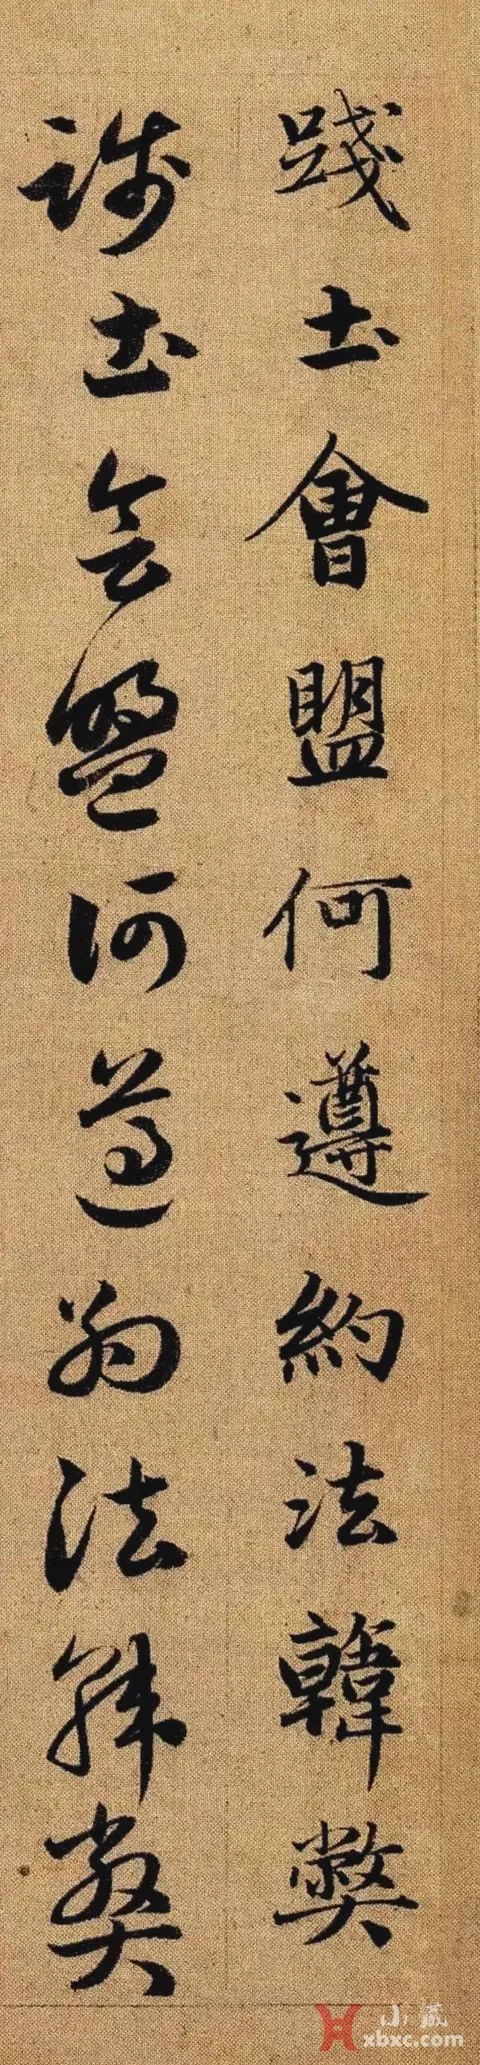 踐土會盟何遵約法韓弊
踐土會盟何遵約法韓弊
小藏
xbxc.com